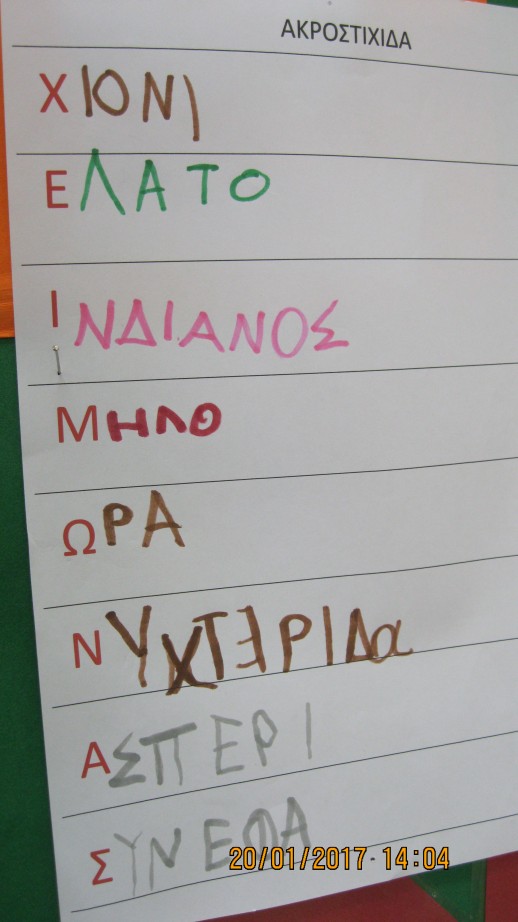 ΑΚΡΟΣΤΙΧΙΔΑ
ΧΙΟΝΙ
ΕΛΑΤΟ
ΙΝΔΙΑΝΟΣ
ΜΗΛΟ
ΩΡΑ
ΝΥΧΤΕΡΙΔα
ΑΣΠΕΡΙ
ΣΥΝΕΦΑ
20/01/2017 14:04